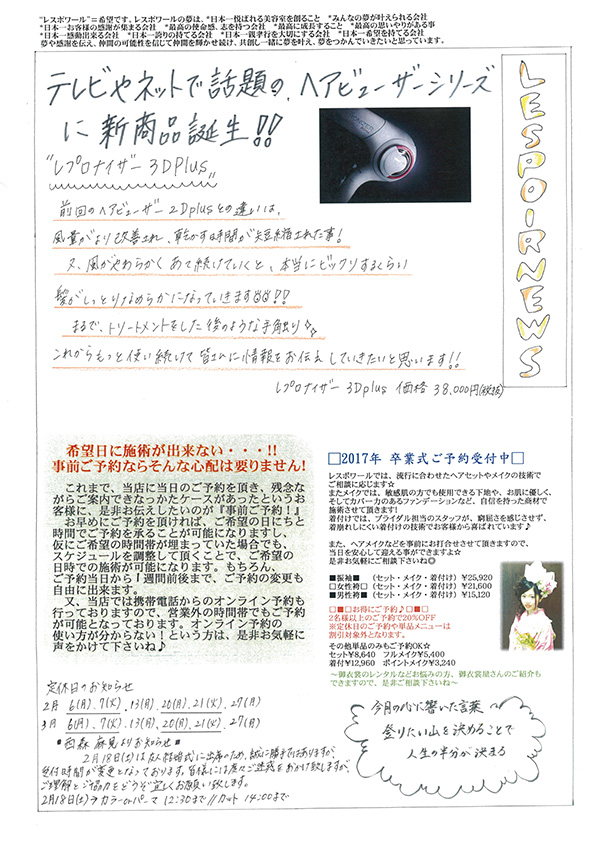 "レスポワール"=希望です。レスポワールの夢は、*日本一悦ばれる美容室を創ること　*みんなの夢が叶えられる会社
*日本一お客様の感謝が集まる会社　*最高の使命感、志を持つ会社　*最高に成長すること　*最高の思いやりがある事
*日本一感動出来る会社　*日本一誇りの持てる会社　*日本一親孝行を大切にする会社　*日本一希望を持てる会社
夢や感謝を伝え、仲間の可能性を信じて仲間を輝かせ続け、共創し一緒に夢を叶え、夢をつかんでいきたいと思っています。
LESPOIRNEWS
テレビやネットで話題の、ヘアビューザーシリーズ
に新商品誕生!!
"レプロナイザー 3DPlus"
前回のヘアビューザー2Dplusとの違いは、
風量がより改善され、乾かす時間が短縮された事!
又、風がやわらかくあて続けていくと、本当にビックリするくらい
髪がしっとりなめらかになっていきます!!
まるで、トリートメントをした後のような手触り☆
これからもっと使い続けて皆さんに情報をお伝えしていきたいと思います!!
レプロナイザー 3Dplus 価格 38,000円(税抜)
希望日に施術が出来ない・・・!!
事前ご予約ならそんな心配は要りません!
これまで、当店に当日のご予約を頂き、残念な
がらご案内できなっかたケースがあったというお
客様に、是非お伝えしたいのが『事前ご予約!』
お早めにご予約を頂ければ、ご希望の日にちと
時間でご予約を承ることが可能になりますし、
仮にご希望の時間帯が埋まっていた場合でも、
スケジュールを調整して頂くことで、ご希望の
日時での施術が可能になります。もちろん、
ご予約当日から1週間前後まで、ご予約の変更も
自由に出来ます。
又、当店では携帯電話からのオンライン予約も
行っておりますので、営業外の時間帯でもご予約
が可能となっております。オンライン予約の
使い方が分からない!という方は、是非お気軽に
声をかけて下さいね♪
□2017年 卒業式ご予約受付中□
レスポワールでは、流行に合わせたヘアセットやメイクの技術で
ご相談に応じます☆
またメイクでは、敏感肌の方でも使用できる下地や、お肌に優しく、
そしてカバー力のあるファンデーションなど、自信を持った商材で
施術させて頂きます!
着付けでは、ブライダル担当のスタッフが、窮屈さを感じさせず、
着崩れしにくい着付けの技術でお客様から喜ばれています♪
また、ヘアメイクなどを事前にお打合せさせて頂きますので、
当日を安心して迎える事ができますよ☆
是非お気軽にご相談下さいね◎
■振袖■　（セット・メイク・着付け）￥25,920
□女性袴□（セット・メイク・着付け）￥21,600
■男性袴■（セット・メイク・着付け）￥15,120
□■□お得にご予約♪□■□
2名様以上のご予約で20%OFF
※定休日のご予約や単品メニューは
割引対象外となります。
その他単品のみもご予約OK☆
セット¥8,640　フルメイク¥5,400
着付¥12,960　ポイントメイク¥3,240
～御衣裳のレンタルなどお悩みの方、御衣裳屋さんのご紹介も
できますので、是非ご相談下さいね～
定休日のお知らせ
2月 6(月).7(火).13(月).20(月).21(火).27(月)
3月 6(月).7(火).13(月).20(月).21(火).27(月)
■西森 麻見よりお知らせ■
2月18日(土)は友人結婚式に出席のため、誠に勝手ではありますが、
受付時間が変更となっております。皆様には度々ご迷惑をおかけ致しますが、
ご理解とご協力をどうぞ宜しくお願い致します。
2月18日(土)→カラーorパーマ 12:30まで//カット 14:00まで
今月の心に響いた言葉
登りたい山を決めることで
人生の半分が決まる